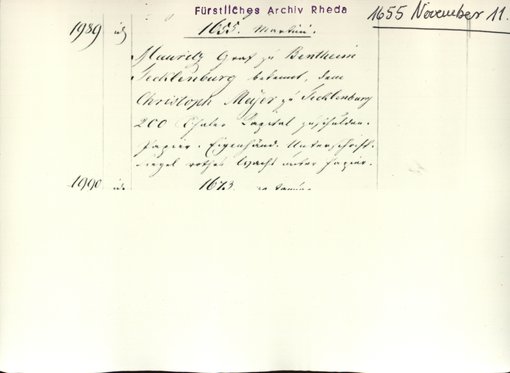 Fürstliches Archiv Rheda
1655 November 11.
1989 id 1655. Martini.
Mauritz Graf zu Bentheim
Tecklenburg bekennt, dem
Christoph Meyer zu Tecklenburg
200 Thaler Capital zu schulden.
Papier. Eigenhänd. Unterschrift.
Siegel rothes Wachs unter Papier.
1990 id 1673.